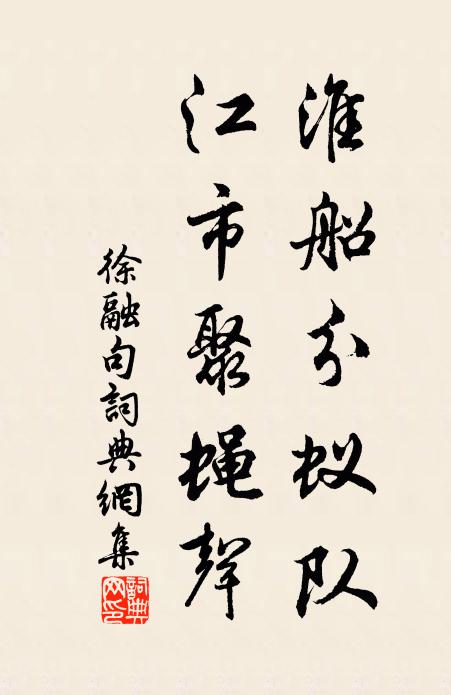 淮船分蚁队
江市聚蝇聲
徐融句詞典網集
詞典网印